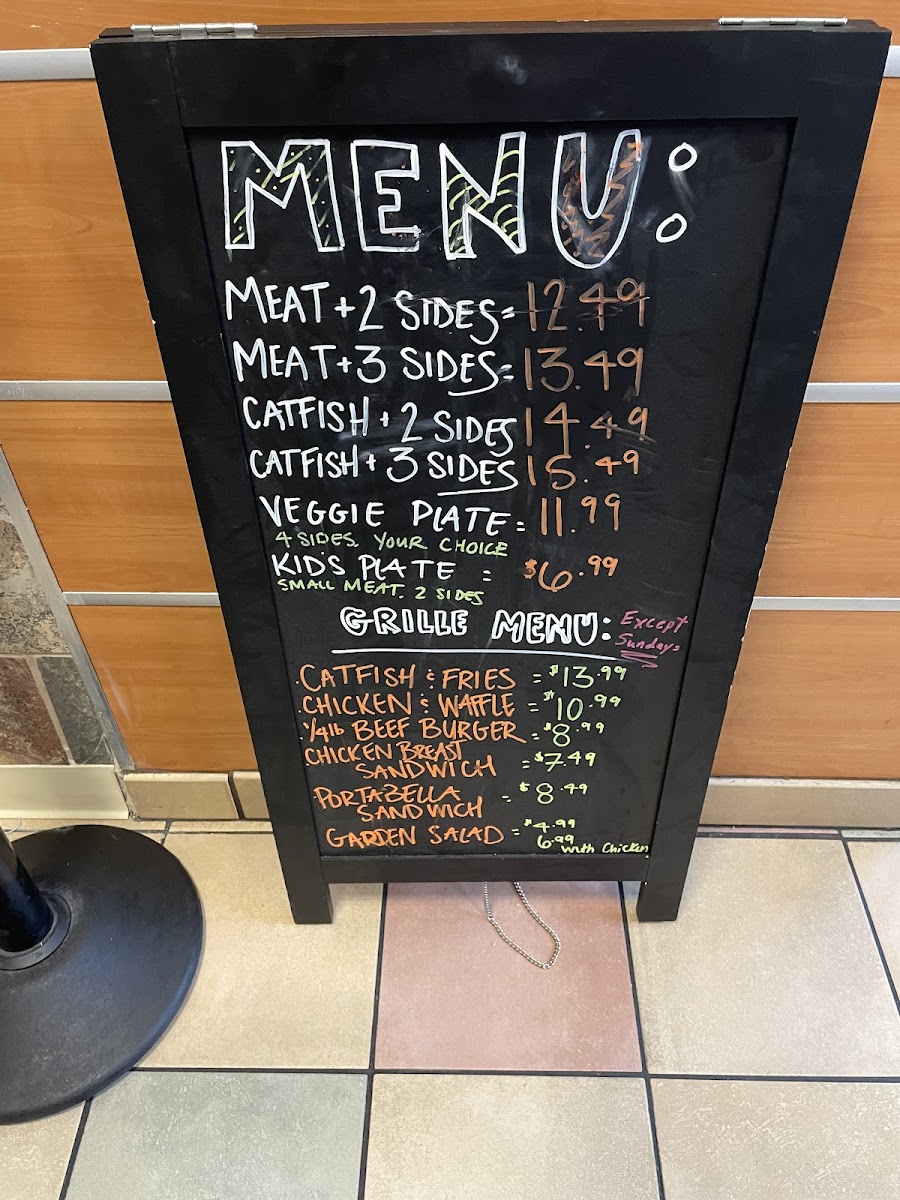 MENU:
MEAT + 2 SIDES = 12.49
MEAT + 3 SIDES = 13.49
CATFISH + 2 SIDES 14.49
CATFISH + 3 SIDES 15.49
VEGGIE PLATE = 11.99
4 SIDES. YOUR CHOICE
KID'S PLATE = $6.99
SMALL MEAT. 2 SIDES
GRILLE MENU: Except
Sundays
CATFISH & FRIES = $13.99
CHICKEN & WAFFLE = $10.99
1/4 lb BEEF BURGER = $8.99
CHICKEN BREAST
SANDWICH = $7.49
PORTABELLA = $8.49
SANDWICH
GARDEN SALAD = $4.99
6.99
with Chicken